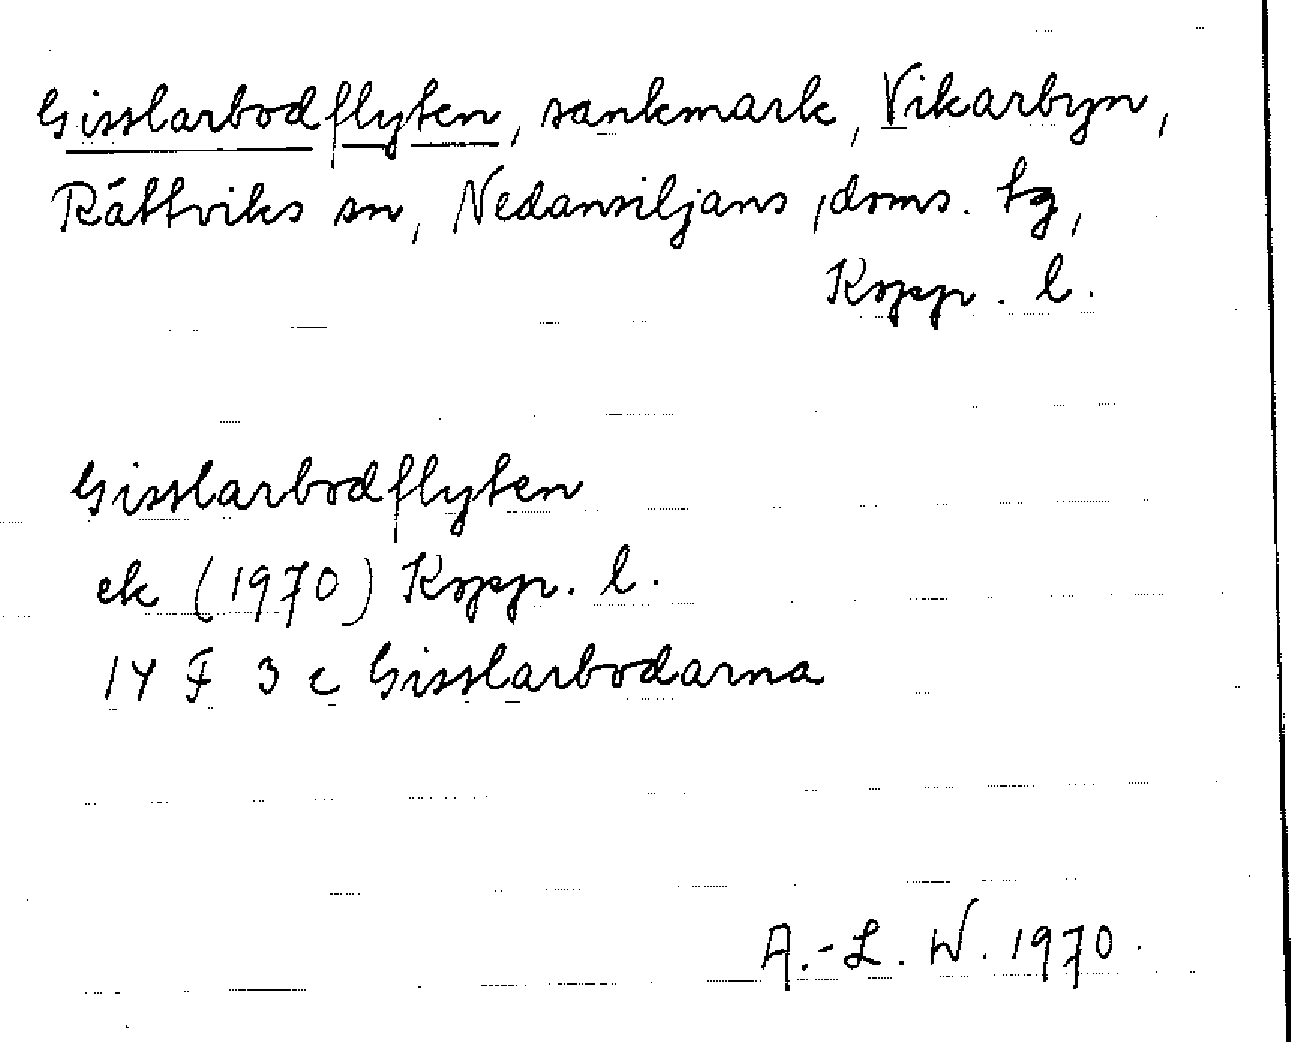 Gisslarbodflyten, sankmark, Vikarbyn,
Rättviks sn, Nedansiljans doms. tg,
Kopp. l.
Gisslarbodflyten
ek (1970) Kopp. l.
14 F 3 c Gisslarbodarna
A.-L. W. 1970.